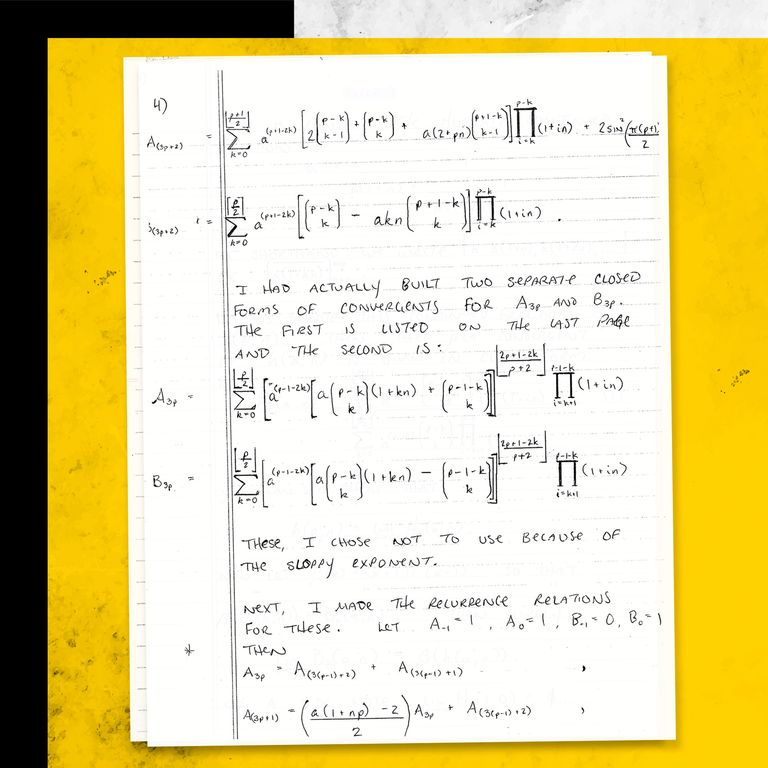 4)
A(3p+2) = ∑_{k=0}^{⌊(p+1)/2⌋} a^(p+1-2k) [2(p-k choose k-1) + (p-k choose k) + a(2+pn)(p+1-k choose k-1)] ∏_{i=k}^{p-k} (1+in) + 2sin²(π(p+1)/2
(3p+2) = ∑_{k=0}^{⌊p/2⌋} a^(p+1-2k) [(p-k choose k) - akn(p+1-k choose k)] ∏_{i=k}^{p-k} (1+in) .
I HAD ACTUALLY BUILT TWO SEPARATE CLOSED
FORMS OF CONVERGENTS FOR A3p AND B3p.
THE FIRST IS LISTED ON THE LAST PAGE
AND THE SECOND IS:
A3p = ∑_{k=0}^{⌊p/2⌋} [a^(p-1-2k) [a(p-k choose k)(1+kn) + (p-1-k choose k)]]^⌊(2p+1-2k)/(p+2)⌋ ∏_{i=k+1}^{p-1-k} (1+in)
B3p = ∑_{k=0}^{⌊p/2⌋} [a^(p-1-2k) [a(p-k choose k)(1+kn) - (p-1-k choose k)]]^⌊(2p+1-2k)/(p+2)⌋ ∏_{i=k+1}^{p-1-k} (1+in)
THESE, I CHOSE NOT TO USE BECAUSE OF
THE SLOPPY EXPONENT.
NEXT, I MADE THE RECURRENCE RELATIONS
FOR THESE. LET A-1=1, A0=1, B-1=0, B0=1
* THEN
A3p = A(3(p-1)+2) + A(3(p-1)+1) ,
A(3p+1) = ((a(1+np)-2)/2) A3p + A(3(p-1)+2) ,